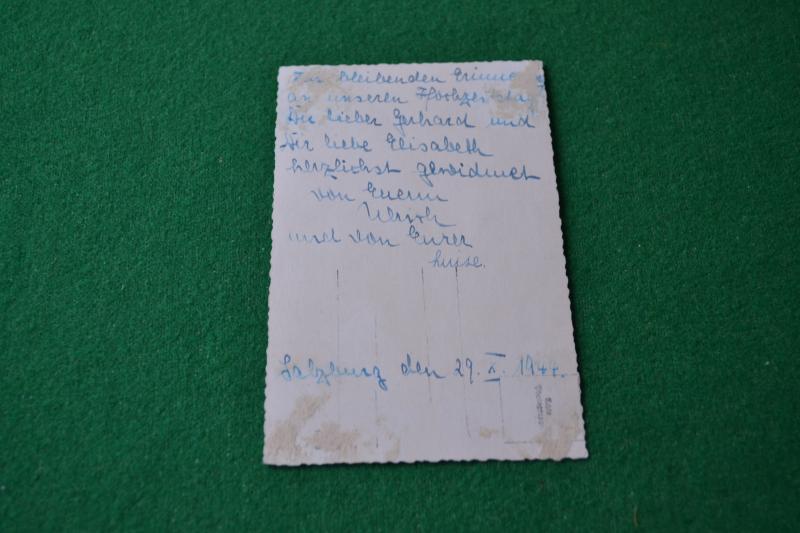 Zur bleibenden Erinne
an unseren Hochzeitsta
Dir lieber Gerhard und
Dir liebe Elisabeth
herzlichst gewidmet
von Euerm
Ulrich
und von Eurer
Luise.
Salzburg den 29. X. 1944.